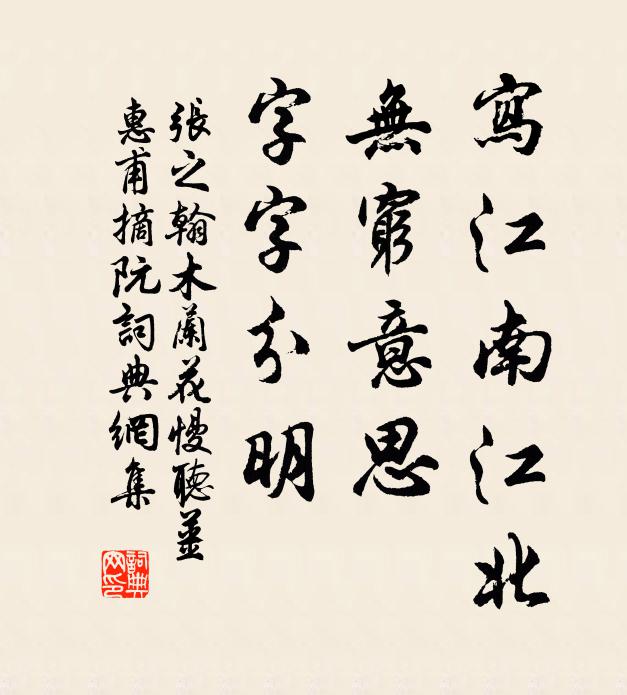 寫江南江北
無窮意思
字字分明
張之翰木蘭花慢聽薑
惠甫摘阮詞典網集
詞典
网印